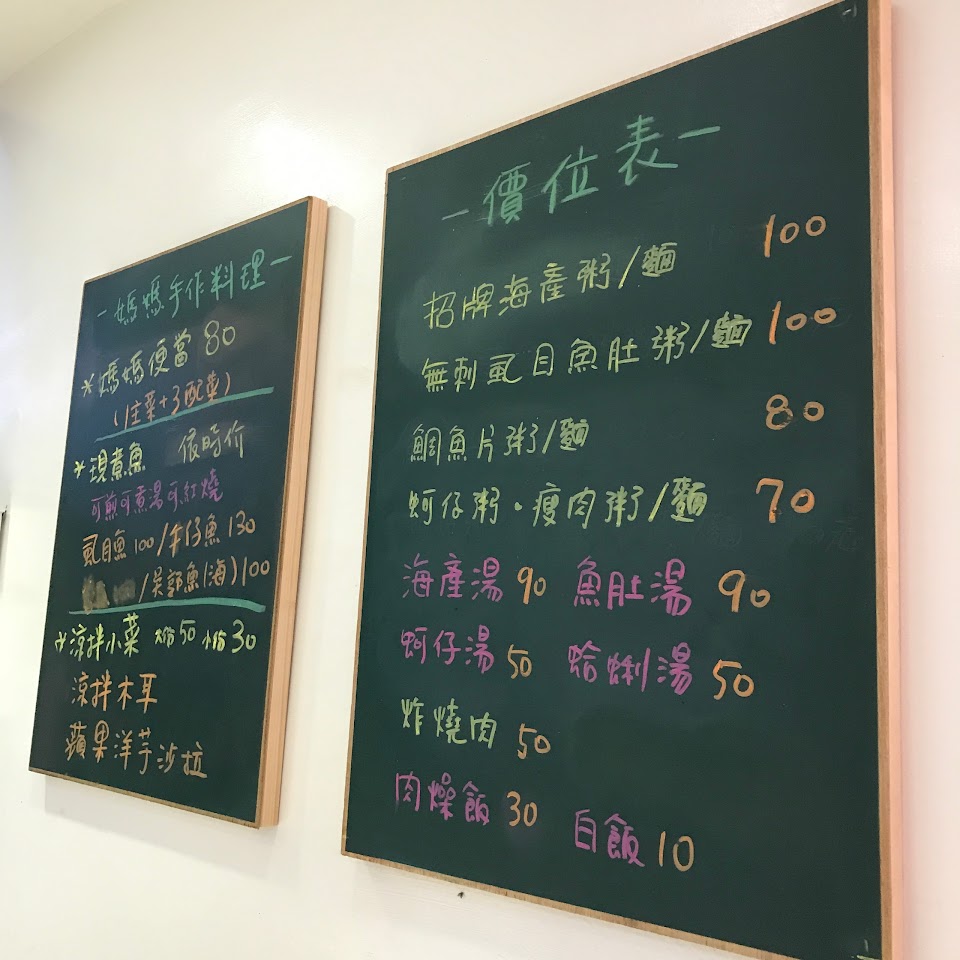 －媽媽手作料理－
＊媽媽便當 80
(1主菜+3配菜)
＊現煮魚 依時价
可煎可煮湯可紅燒
虱目魚100/午仔魚130
/吳郭魚(海)100
＊涼拌小菜 大份50 小份30
涼拌木耳
蘋果洋芋沙拉
－價位表－
招牌海產粥/麵 100
無刺虱目魚肚粥/麵 100
鯛魚片粥/麵 80
蚵仔粥・瘦肉粥/麵 70
海產湯 90 魚肚湯 90
蚵仔湯 50 蛤蜊湯 50
炸燒肉 50
肉燥飯 30 白飯 10